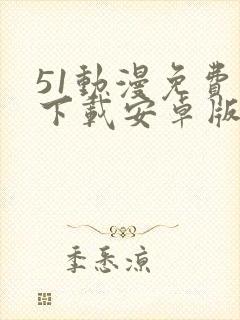 51動漫免費
下載安卓版
季悉涼